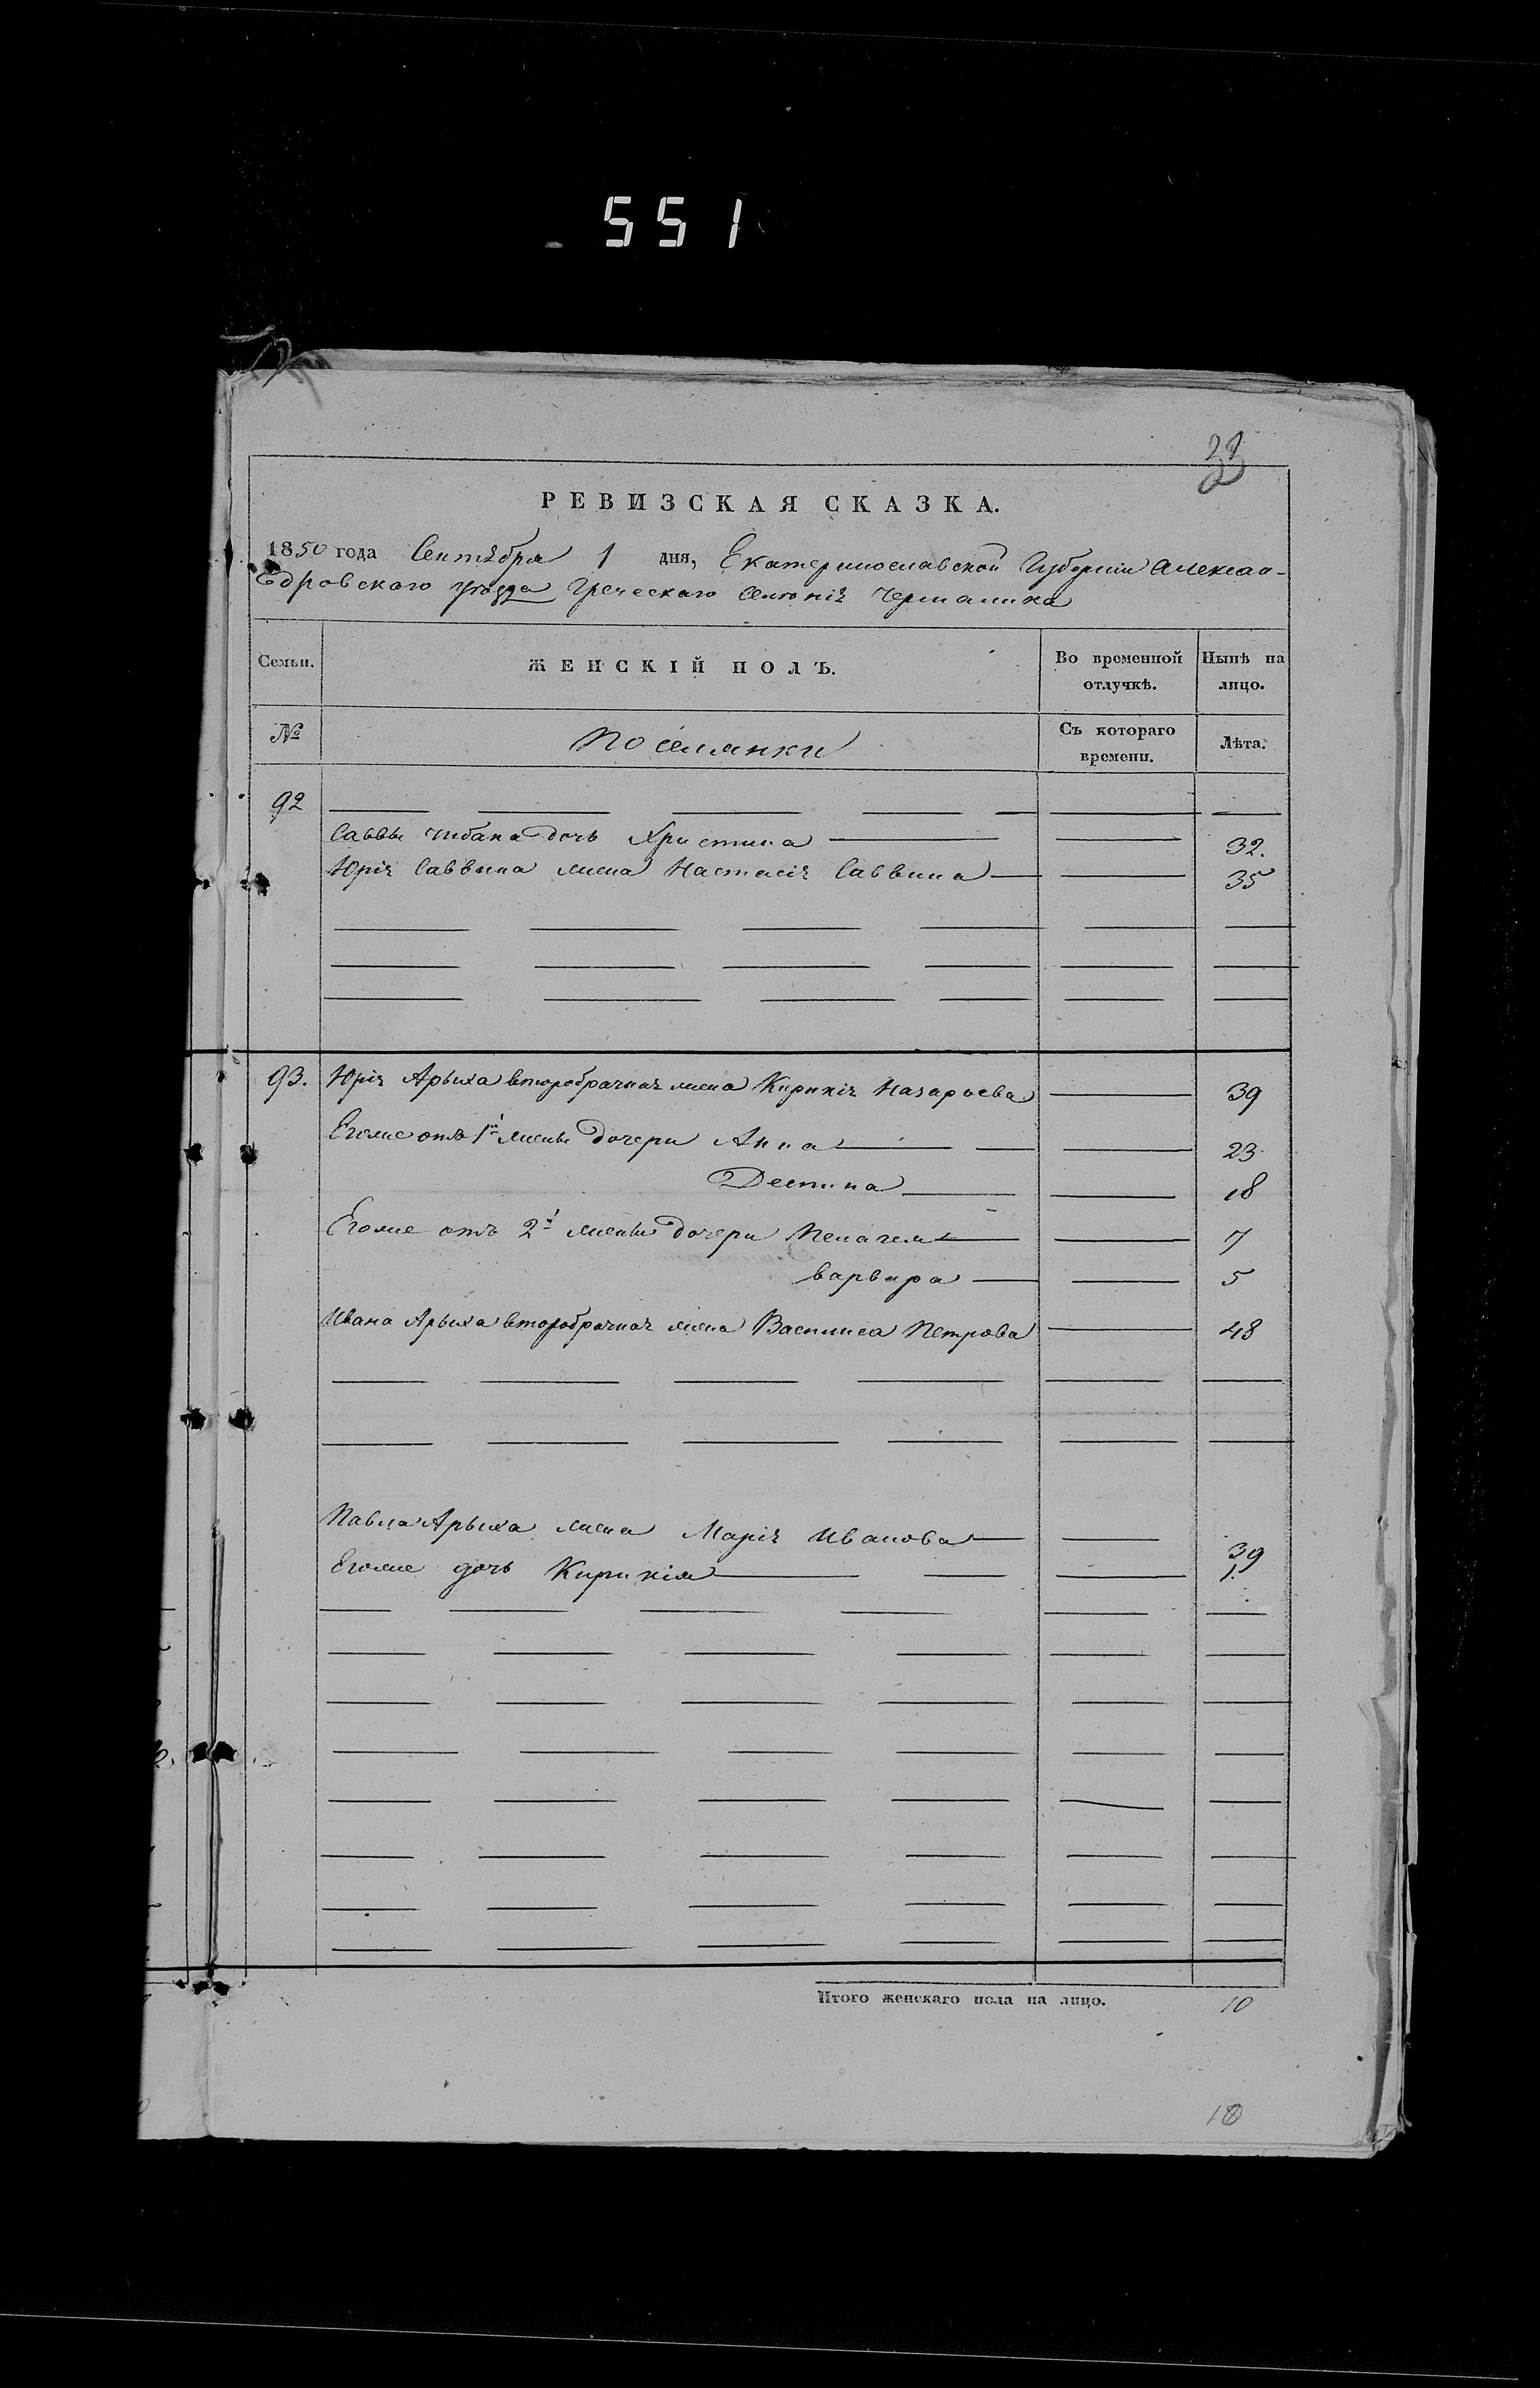 551
33
РЕВИЗСКАЯ СКАЗКА.
1850 года Сентября 1 дня, Екатеринославской Губернии Алексан-
дровского уѣзда Греческаго Селенія Чермалика
Семьи. ЖЕНСКІЙ ПОЛЪ. Во временной отлучкѣ. Нынѣ на лицо.
№ Поселянки Съ котораго времени. Лѣта.
92
Саввы Чибана дочь Христина 32.
Юрія Саввина жена Настасія Саввина 35
93. Юрія Арыха второбрачная жена Кирикія Назарьева 39
Егоже отъ 1й жены дочери Анна 23
Деспина 18
Егоже отъ 2й жены дочери 7
Варвара 5
Ивана Арыха второбрачная жена Василиса Петрова 48
Павла Арыха жена Марія Иванова 39
Егоже дочь Кирикія 1.
Итого женскаго пола на лицо. 10
10